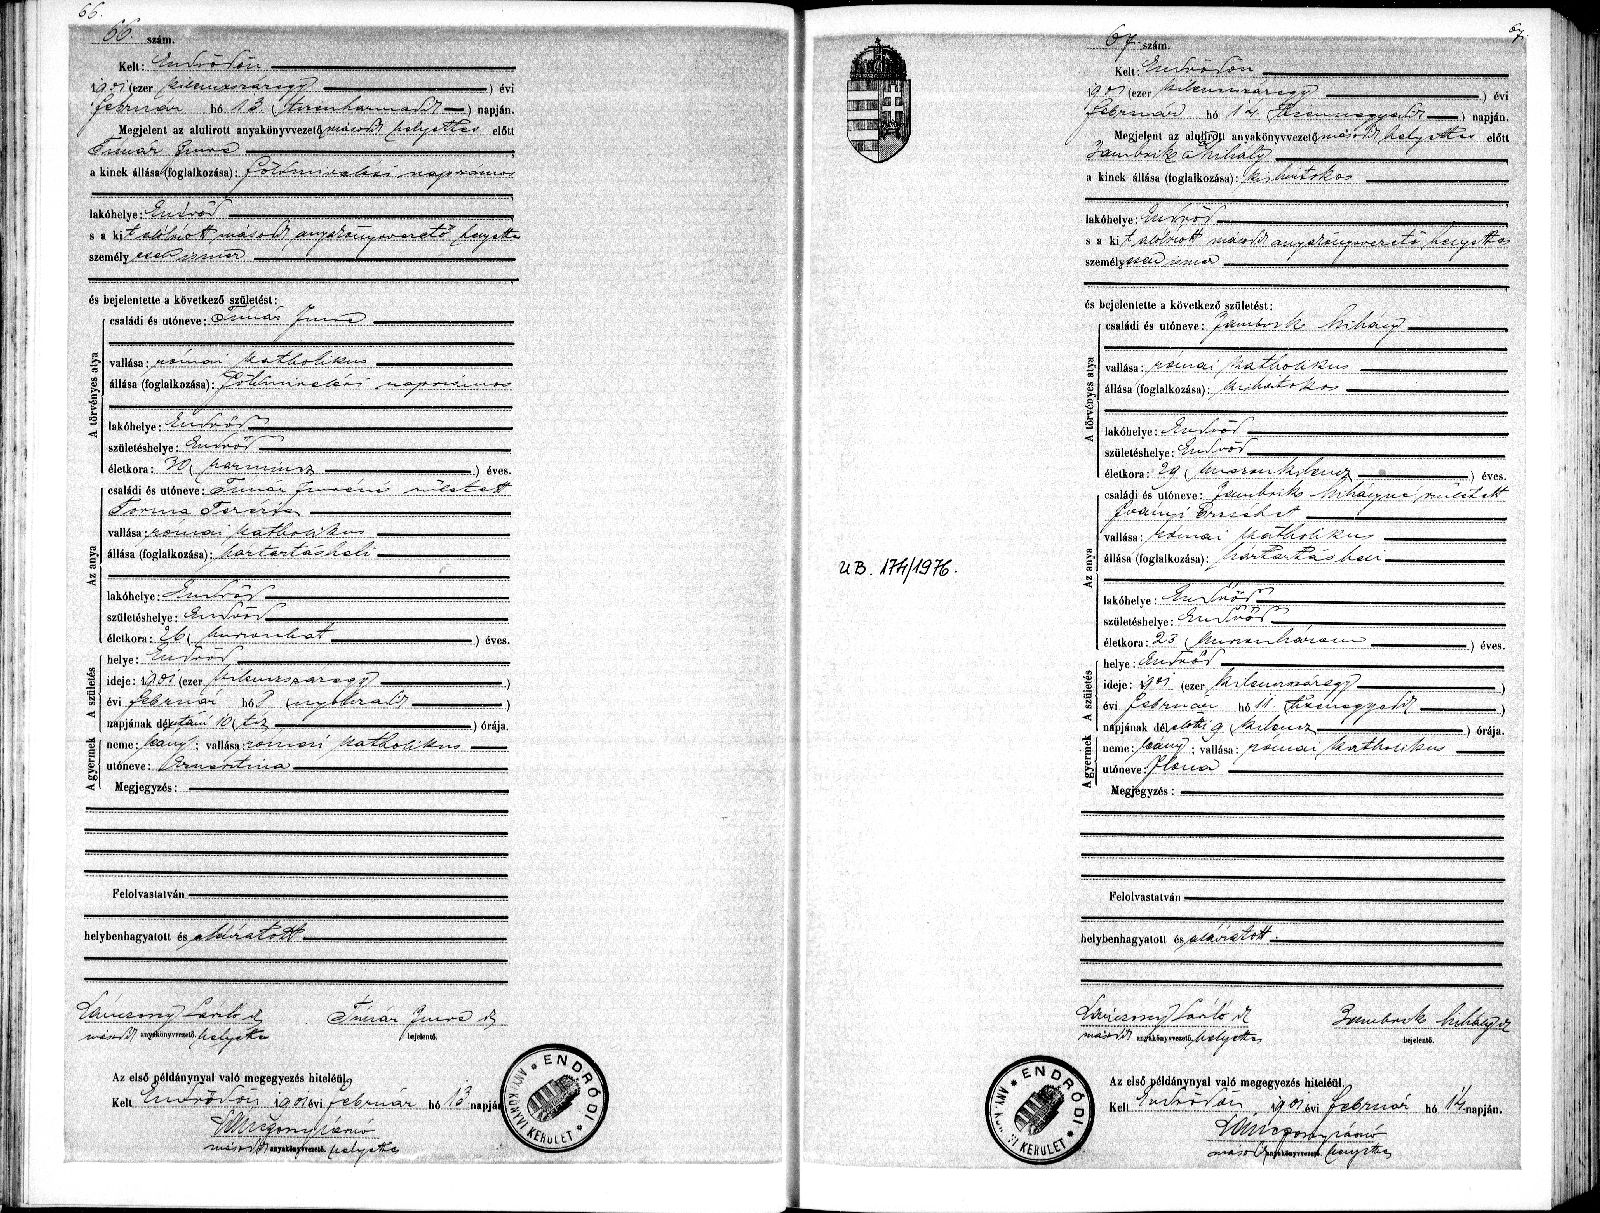 66.
66 szám.
Kelt: Endrődön
1901 (ezer kilenczszázegy) évi
február hó 13 (tizenharmadik) napján.
Megjelent az alulirott anyakönyvvezető másodh helyettes előtt
Tímár Imre
a kinek állása (foglalkozása): földmivelési napszámos
lakóhelye: Endrőd
s a kit alólirott másodh anyakönyvvezető helyettes
személyesen ismer
és bejelentette a következő születést:
A törvényes atya
családi és utóneve: Tímár Imre
vallása: római katholikus
állása (foglalkozása): földmivelési napszámos
lakóhelye: Endrőd
születéshelye: Endrőd
életkora: 30 (harmincz) éves.
Az anya
családi és utóneve: Tímár Imréné született
Torma Terézia
vallása: római katholikus
állása (foglalkozása): háztartásbeli
lakóhelye: Endrőd
születéshelye: Endrőd
életkora: 26 (huszonhat) éves.
A születés
helye: Endrőd
ideje: 1901 (ezer kilenczszázegy)
évi február hó 8 (nyolczadik)
napjának délutáni 10 (tiz) órája.
A gyermek
neme: leány; vallása: római katholikus
utóneve: Ernesztina
Megjegyzés:
Felolvastatván
helybenhagyatott és aláiratott
Lánczony László
másodh anyakönyvvezető helyettes
Tímár Imre
bejelentő.
Az első példánynyal való megegyezés hiteléül,
Kelt Endrődön 1901 évi február hó 13 napján
Lánczony László
másodh anyakönyvvezető helyettes
ENDRŐDI ANYAKÖNYVI KERÜLET
U.B. 174/1976.
67.
67 szám.
Kelt: Endrődön
1901 (ezer kilenczszázegy) évi
február hó 14 (tizennegyedik) napján.
Megjelent az alulirott anyakönyvvezető másodh helyettes előtt
Zambrik Mihály
a kinek állása (foglalkozása): kisbirtokos
lakóhelye: Endrőd
s a kit alólirott másodh anyakönyvvezető helyettes
személyesen ismer
és bejelentette a következő születést:
A törvényes atya
családi és utóneve: Zambrik Mihály
vallása: római katholikus
állása (foglalkozása): kisbirtokos
lakóhelye: Endrőd
születéshelye: Endrőd
életkora: 29 (huszonkilencz) éves.
Az anya
családi és utóneve: Zambrik Mihályné született
Iványi Erzsébet
vallása: római katholikus
állása (foglalkozása): háztartásbeli
lakóhelye: Endrőd
születéshelye: Endrőd
életkora: 23 (huszonhárom) éves.
A születés
helye: Endrőd
ideje: 1901 (ezer kilenczszázegy)
évi február hó 11 (tizenegyedik)
napjának délelőtti 9 (kilencz) órája.
A gyermek
neme: leány; vallása: római katholikus
utóneve: Ilona
Megjegyzés:
Felolvastatván
helybenhagyatott és aláiratott
Lánczony László
másodh anyakönyvvezető helyettes
Zambrik Mihály
bejelentő.
Az első példánynyal való megegyezés hiteléül,
Kelt Endrődön 1901 évi február hó 14 napján.
Lánczony László
másodh anyakönyvvezető helyettes
ENDRŐDI ANYAKÖNYVI KERÜLET